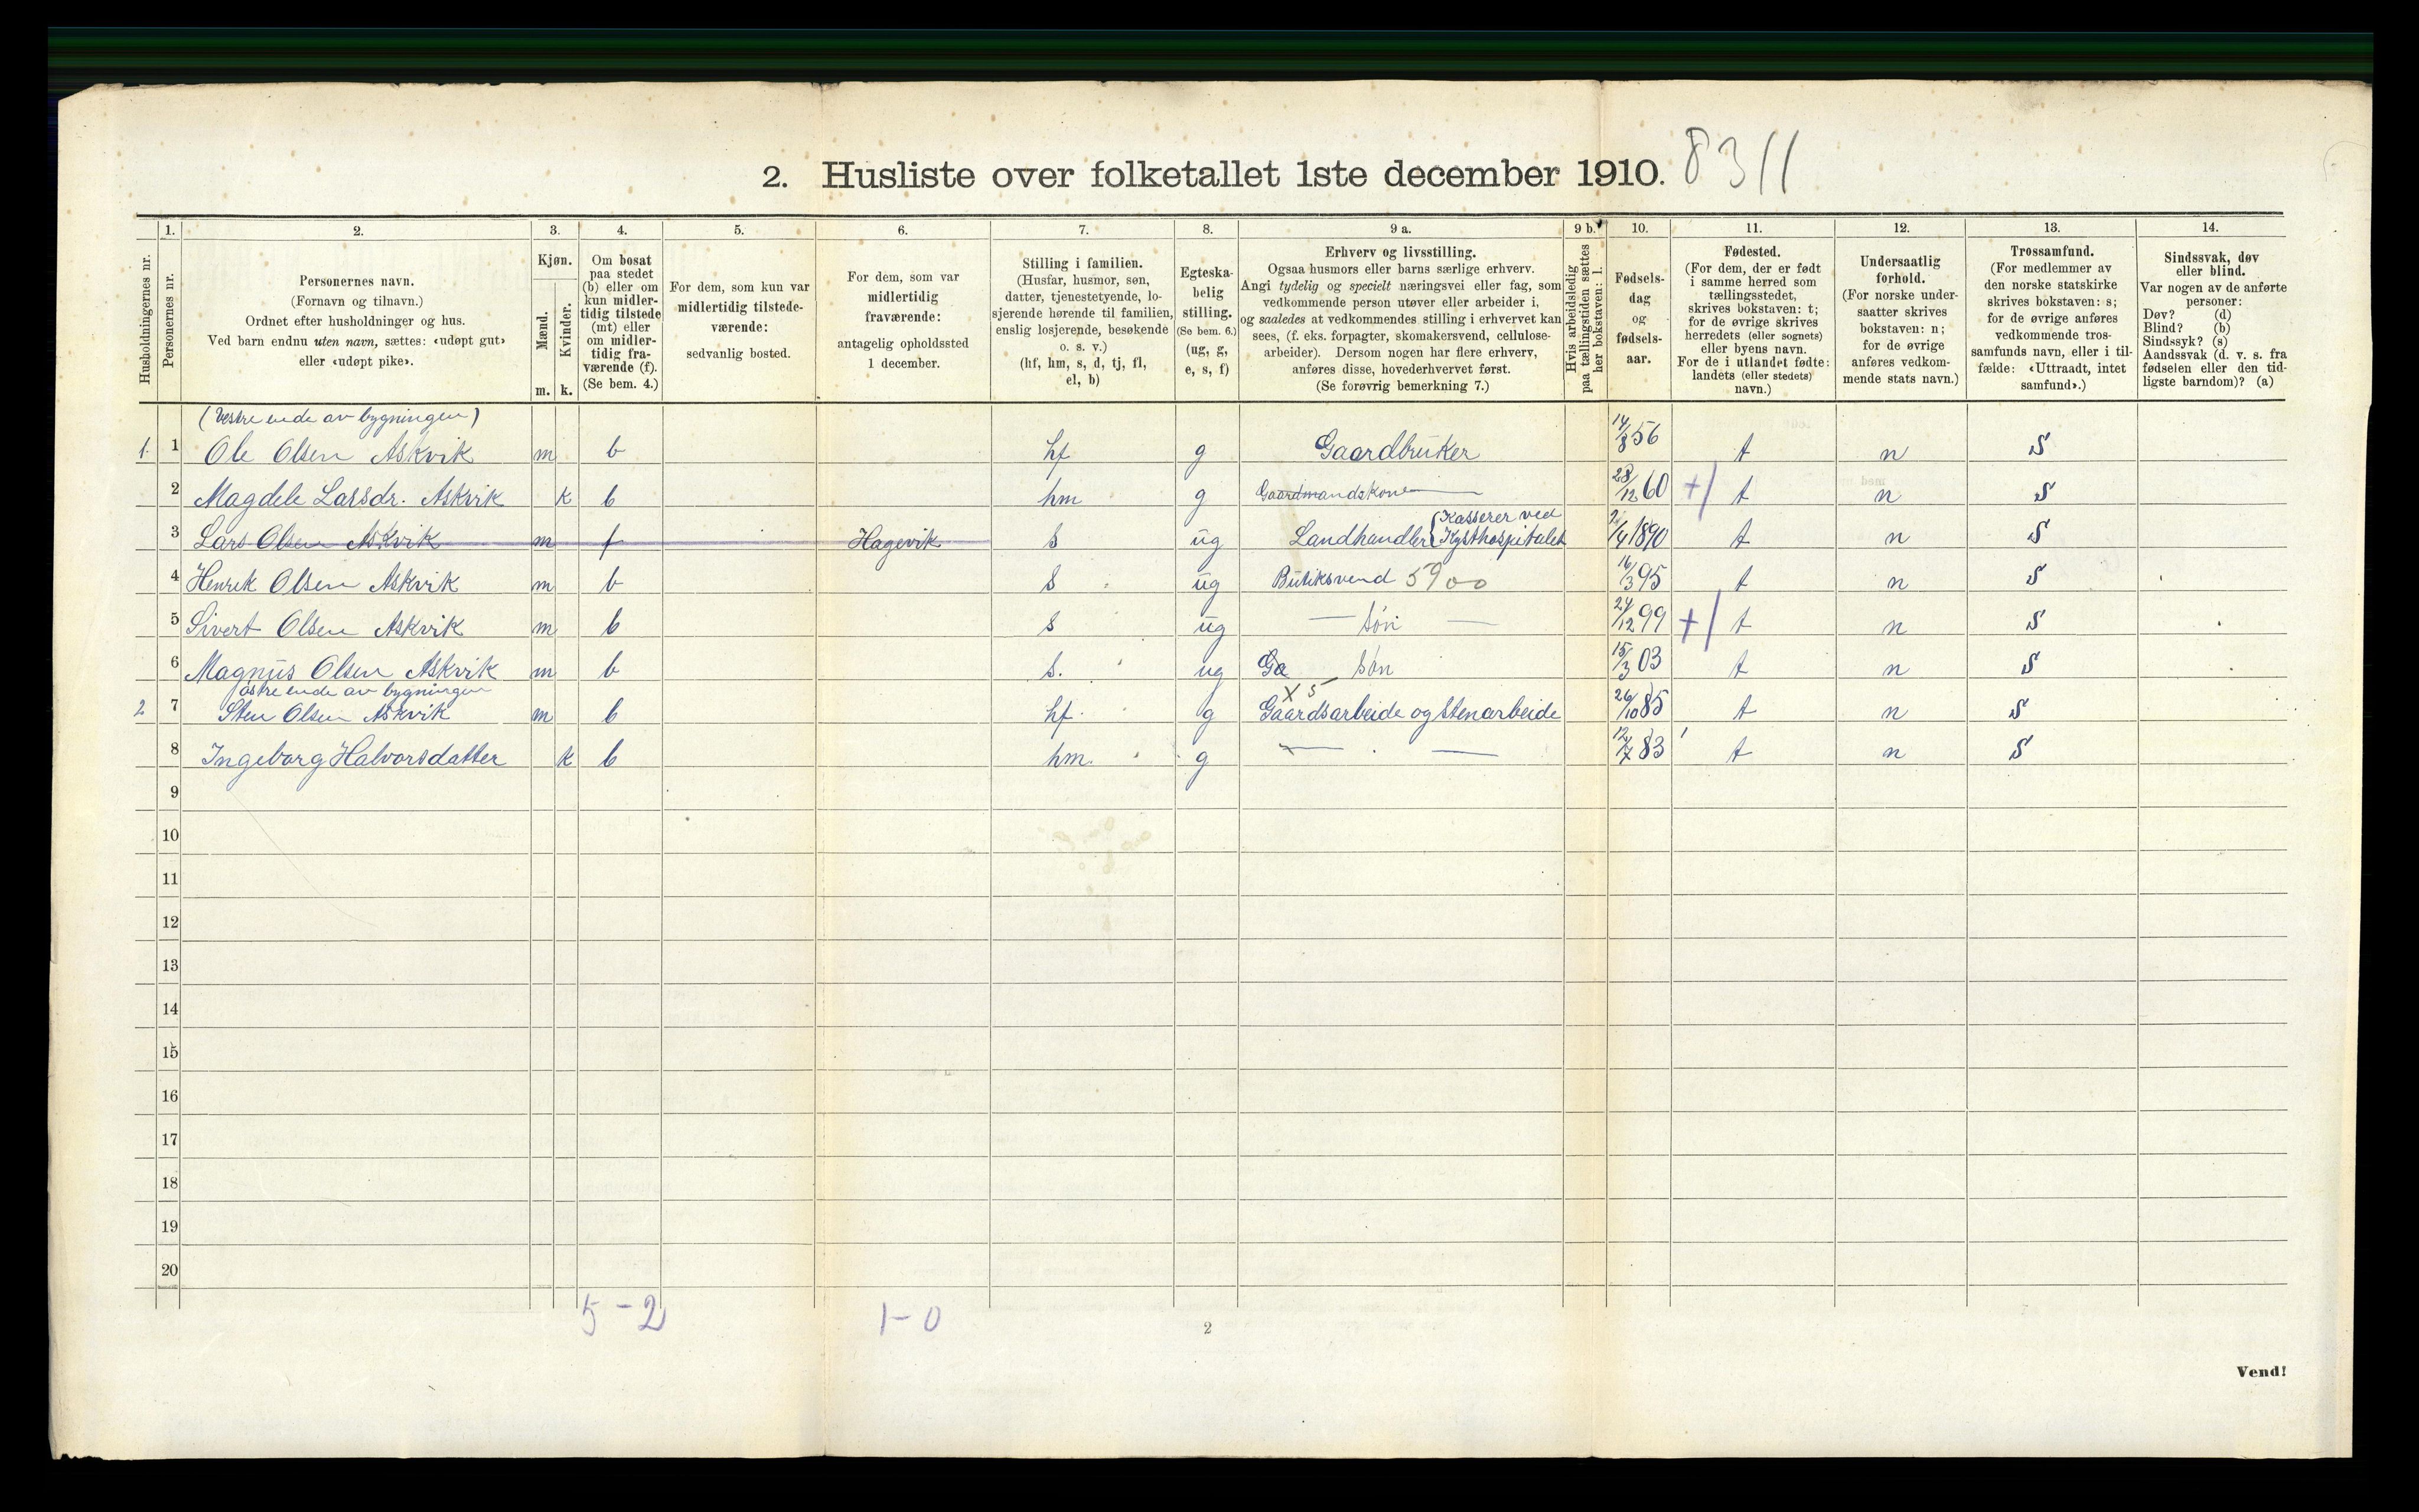 2. Husliste over folketallet 1ste december 1910. 8311
Husholdningernes nr.
1. Personernes nr.
2. Personernes navn.
(Fornavn og tilnavn.)
Ordnet efter husholdninger og hus.
Ved barn endnu uten navn, sættes: «udøpt gut»
eller «udøpt pike».
3. Kjøn.
Mænd. m.
Kvinder. k.
4. Om bosat
paa stedet
(b) eller om
kun midler-
tidig tilstede
(mt) eller
om midler-
tidig fra-
værende (f).
(Se bem. 4.)
5. For dem, som kun var
midlertidig tilstede-
værende:
sedvanlig bosted.
6. For dem, som var
midlertidig
fraværende:
antagelig opholdssted
1 december.
7. Stilling i familien.
(Husfar, husmor, søn,
datter, tjenestetyende, lo-
sjerende hørende til familien,
enslig losjerende, besøkende
o. s. v.)
(hf, hm, s, d, tj, fl,
el, b)
8. Egteska-
belig
stilling.
(Se bem. 6.)
(ug, g,
e, s, f)
9 a. Erhverv og livsstilling.
Ogsaa husmors eller barns særlige erhverv.
Angi tydelig og specielt næringsvei eller fag, som
vedkommende person utøver eller arbeider i,
og saaledes at vedkommendes stilling i erhvervet kan
sees, (f. eks. forpagter, skomakersvend, cellulose-
arbeider). Dersom nogen har flere erhverv,
anføres disse, hovederhvervet først.
(Se forøvrig bemerkning 7.)
9 b. Hvis arbeidsledig
paa tællingstiden sættes
her bokstaven: l.
10. Fødsels-
dag
og
fødsels-
aar.
11. Fødested.
(For dem, der er født
i samme herred som
tællingsstedet,
skrives bokstaven: t;
for de øvrige skrives
herredets (eller sognets)
eller byens navn.
For de i utlandet fødte:
landets (eller stedets)
navn.)
12. Undersaatlig
forhold.
(For norske under-
saatter skrives
bokstaven: n;
for de øvrige
anføres vedkom-
mende stats navn.)
13. Trossamfund.
(For medlemmer av
den norske statskirke
skrives bokstaven: s;
for de øvrige anføres
vedkommende tros-
samfunds navn, eller i til-
fælde: «Uttraadt, intet
samfund».)
14. Sindssvak, døv
eller blind.
Var nogen av de anførte
personer:
Døv? (d)
Blind? (b)
Sindssyk? (s)
Aandssvak (d. v. s. fra
fødselen eller den tid-
ligste barndom)? (a)
(Vestre ende av bygningen)
1 1 Ole Olsen Askvik m b hf g Gaardbruker 14/8 56 t n S
2 Magdele Larsdr. Askvik k b hm g Gaardmandskone 28/12 60 +/ t n S
3 Lars Olsen Askvik m f Hagevik s ug Landhandler (Kasserer ved Kysthospitalet 2/4 1890 t n S
4 Henrik Olsen Askvik m b s ug Butiksvend 5900 16/3 95 t n S
5 Sivert Olsen Askvik m b s ug — søn — 24/12 99 +/ t n S
6 Magnus Olsen Askvik m b s. ug Ga søn 15/3 03 t n S
østre ende av bygningen X 5
2 7 Sten Olsen Askvik m b hf. g Gaardsarbeide og Stenarbeide 26/10 85 t n S
8 Ingeborg Halvorsdatter k b hm. g — — 12/7 83 t n S
9
10
11
12
13
14
15
16
17
18
19
20
5 - 2 1 - 0
2
Vend!